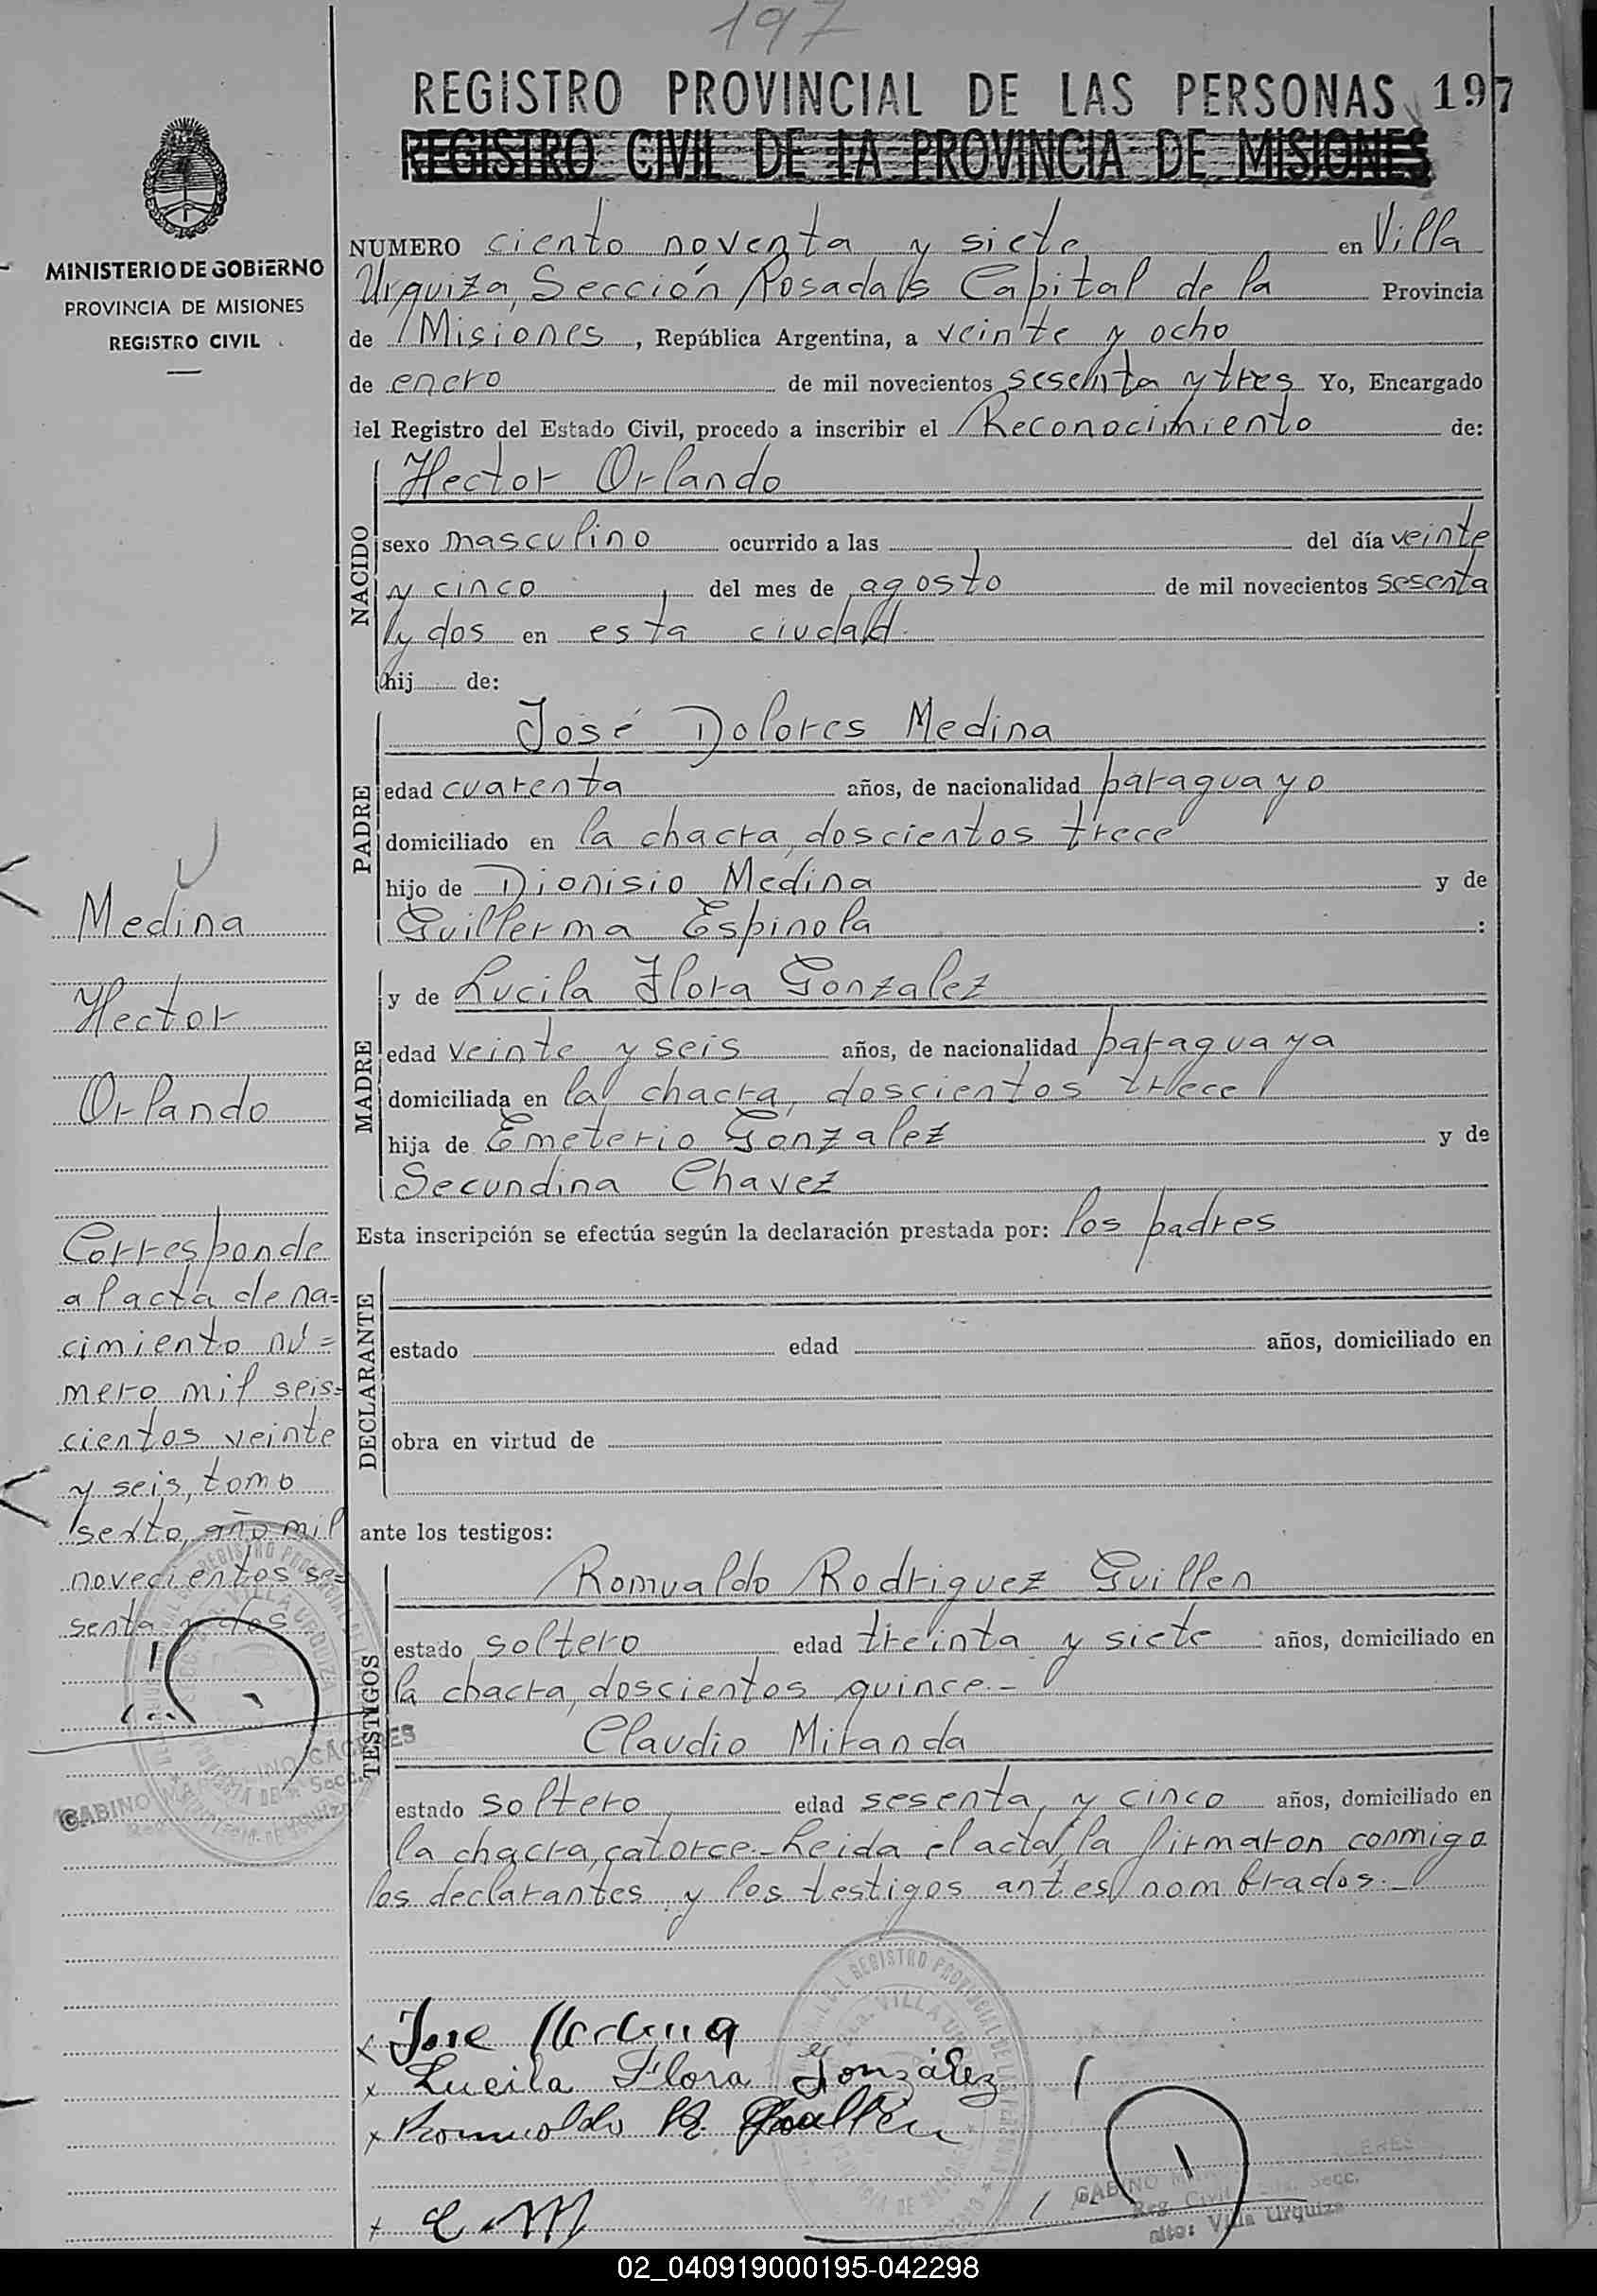 197
REGISTRO PROVINCIAL DE LAS PERSONAS 197
REGISTRO CIVIL DE LA PROVINCIA DE MISIONES
MINISTERIO DE GOBIERNO
PROVINCIA DE MISIONES
REGISTRO CIVIL
NUMERO ciento noventa y siete en Villa
Urquiza, Sección Rosadals Capital de la Provincia
de Misiones, República Argentina, a veinte y ocho
de enero de mil novecientos sesenta y tres Yo, Encargado
del Registro del Estado Civil, procedo a inscribir el Reconocimiento de:
NACIDO
Hector Orlando
sexo masculino ocurrido a las del día veinte
y cinco del mes de agosto de mil novecientos sesenta
y dos en esta ciudad.
hij de:
PADRE
José Dolores Medina
edad cuarenta años, de nacionalidad paraguayo
domiciliado en la chacra, doscientos trece
hijo de Dionisio Medina y de
Guillerma Espinola :
MADRE
y de Lucila Flora Gonzalez
edad veinte y seis años, de nacionalidad paraguaya
domiciliada en la chacra, doscientos trece
hija de Emeterio Gonzalez y de
Secundina Chavez
Esta inscripción se efectúa según la declaración prestada por: los padres
DECLARANTE
estado edad años, domiciliado en
obra en virtud de
ante los testigos:
TESTIGOS
Romualdo Rodriguez Guillen
estado soltero edad treinta y siete años, domiciliado en
la chacra, doscientos quince.-
Claudio Miranda
estado soltero edad sesenta y cinco años, domiciliado en
la chacra, catorce.- Leida el acta, la firmaron conmigo
los declarantes y los testigos antes nombrados.-
Medina
Hector
Orlando
Corresponde
al acta de na=
cimiento nú=
mero mil seis=
cientos veinte
y seis, tomo
sexto, año mil
novecientos se=
senta y dos
x Jose Medina
x Lucila Flora González
x Romualdo R. Guillen
x C. M
GABINO CACERES
Secc.
GABINO CACERES
Reg. Civil Secc.
Villa Urquiza
02_040919000195-042298